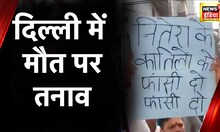 दिल्ली में
मौत पर
तनाव
नितेश के
कातिलों को
फांसी दो
फांसी दो
न्यूज़
इंडिया